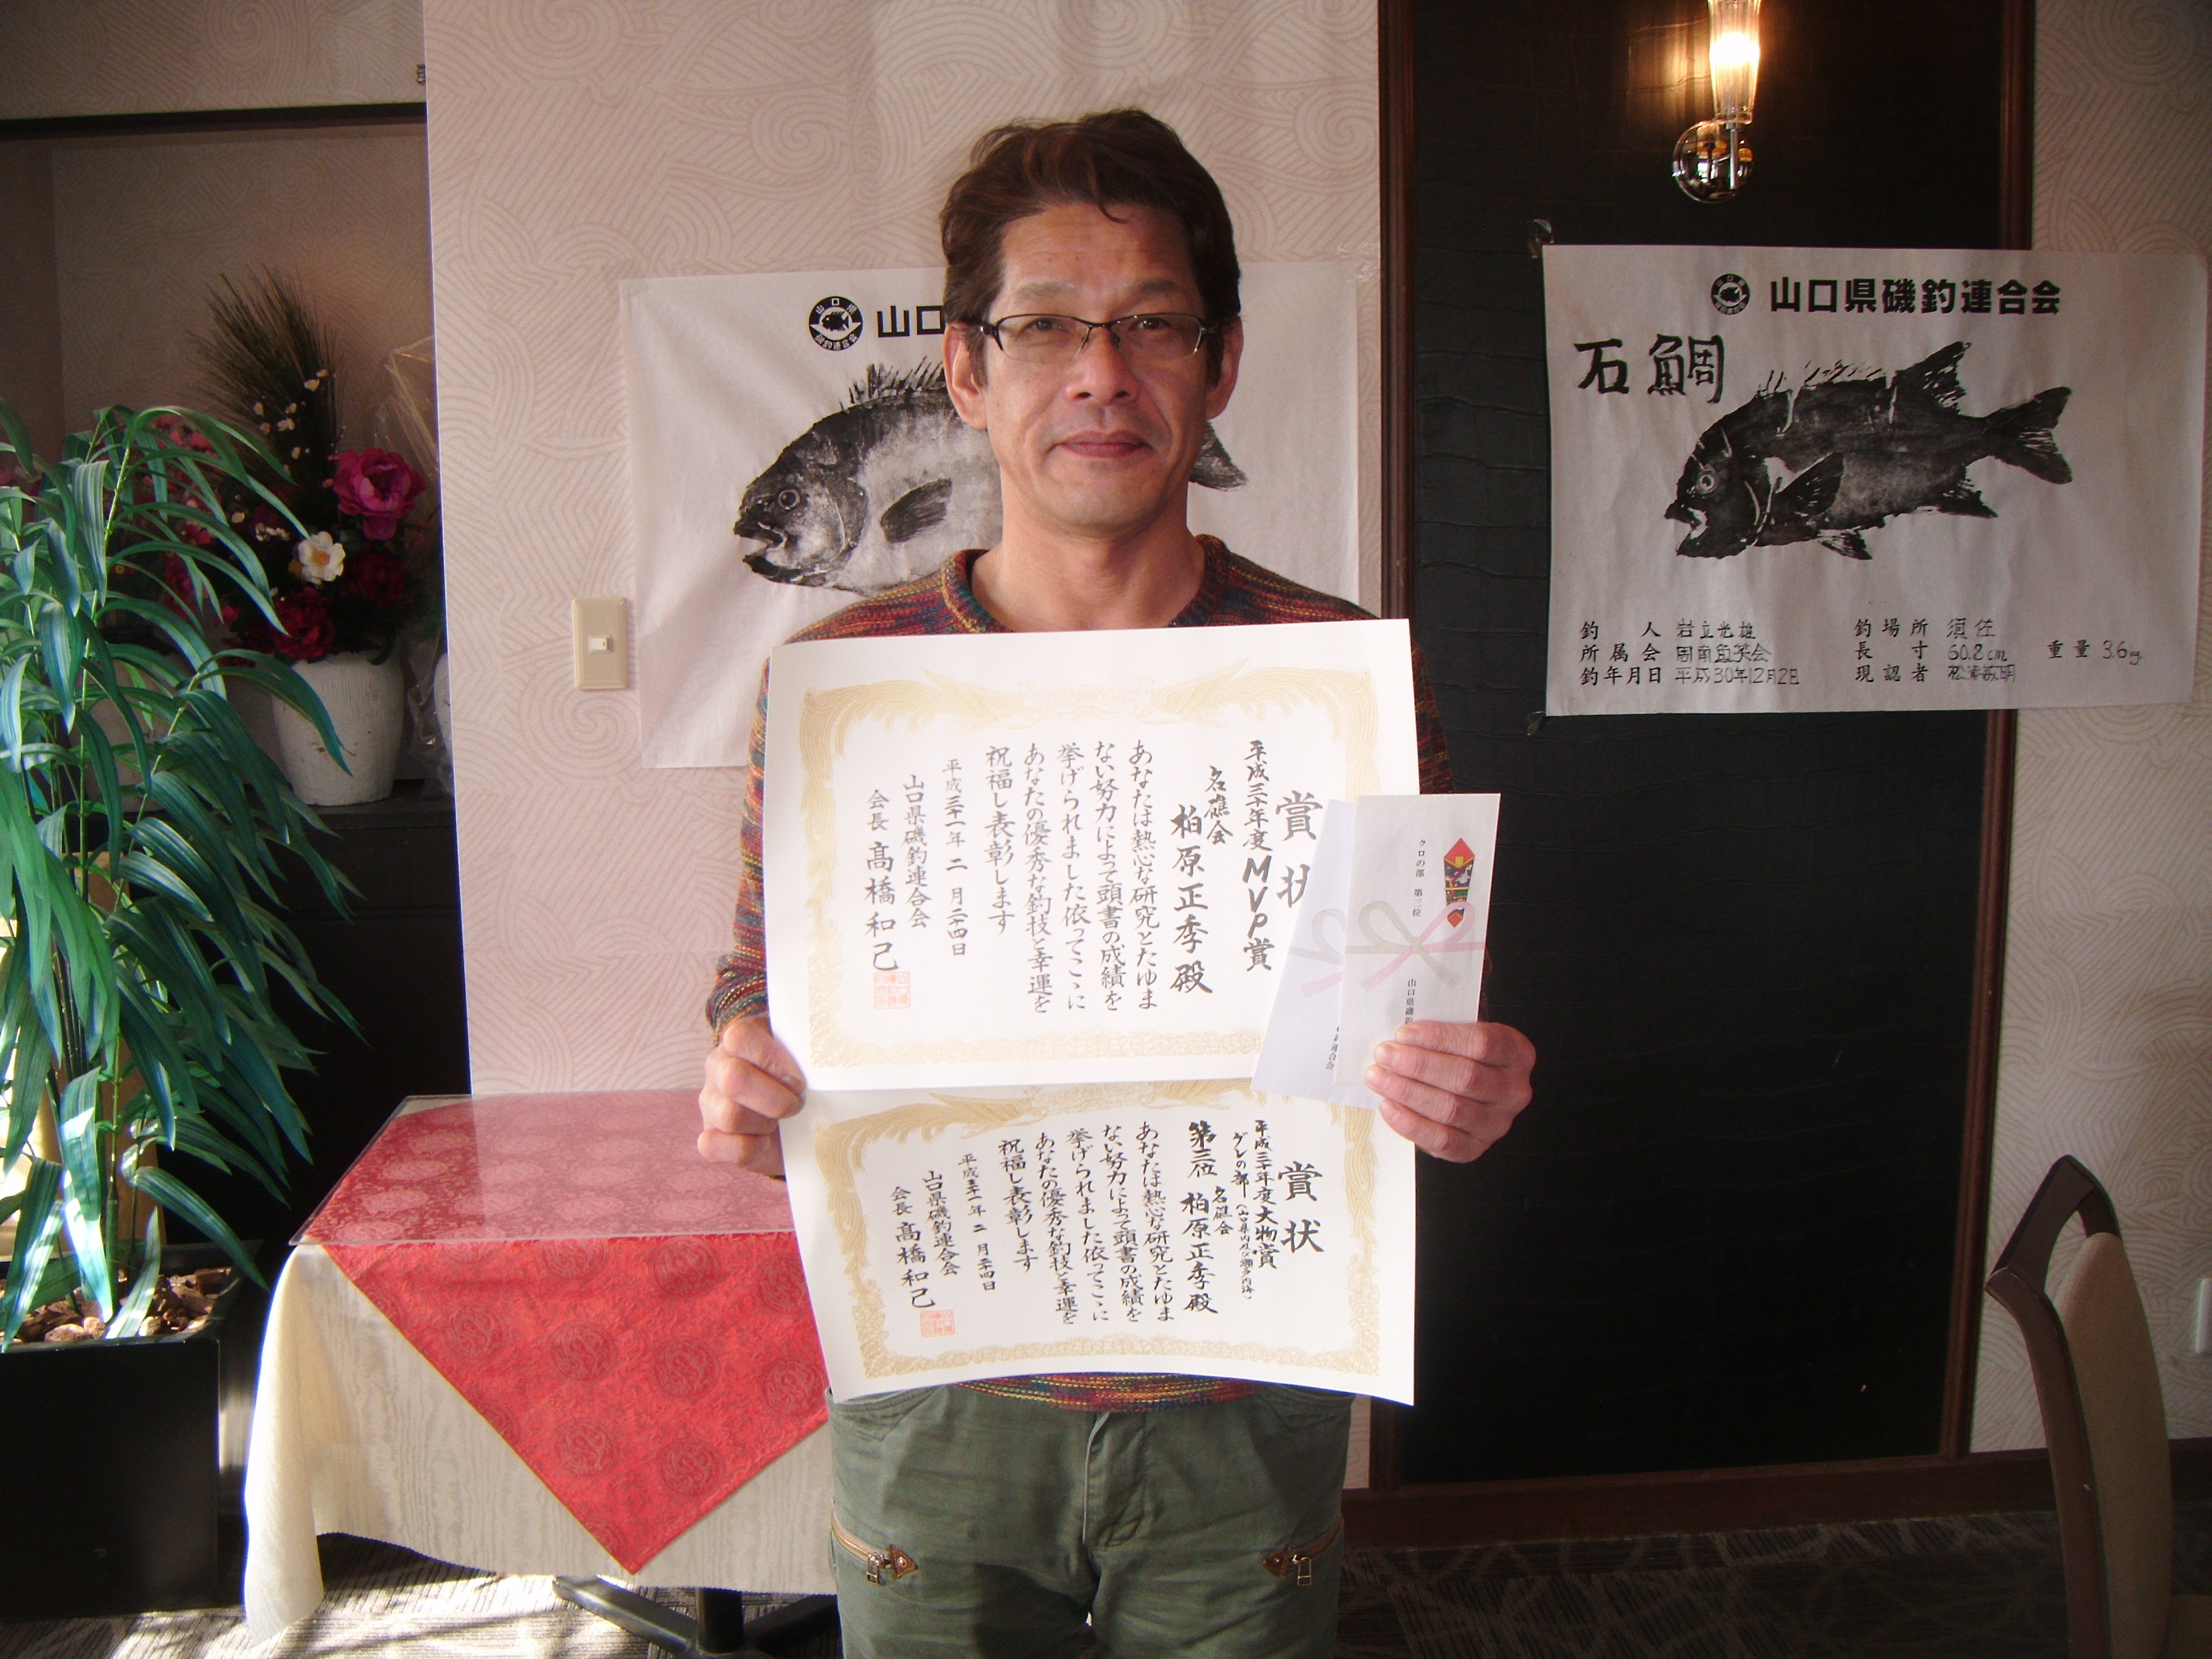 山口
山口県磯釣連合会
石鯛
釣人 岩立光雄
所属会 周南魚英会
釣年月日 平成30年12月2日
釣場所 須佐
長寸 60.8cm
重量 3.6kg
現認者
賞状
平成三十年度MVP賞
名礁会
柏原正季殿
あなたは熱心な研究とたゆま
ない努力によって頭書の成績を
挙げられました依ってこゝに
あなたの優秀な釣技と幸運を
祝福し表彰します
平成三十一年二月二十四日
山口県磯釣連合会
会長 髙橋和己
クロの部 第三位
山口県磯釣
連合会
賞状
平成三十年度大物賞
グレの部
第三位
名礁会
柏原正季殿
あなたは熱心な研究とたゆま
ない努力によって頭書の成績を
挙げられました依ってこゝに
あなたの優秀な釣技と幸運を
祝福し表彰します
平成三十一年二月二十四日
山口県磯釣連合会
会長 髙橋和己